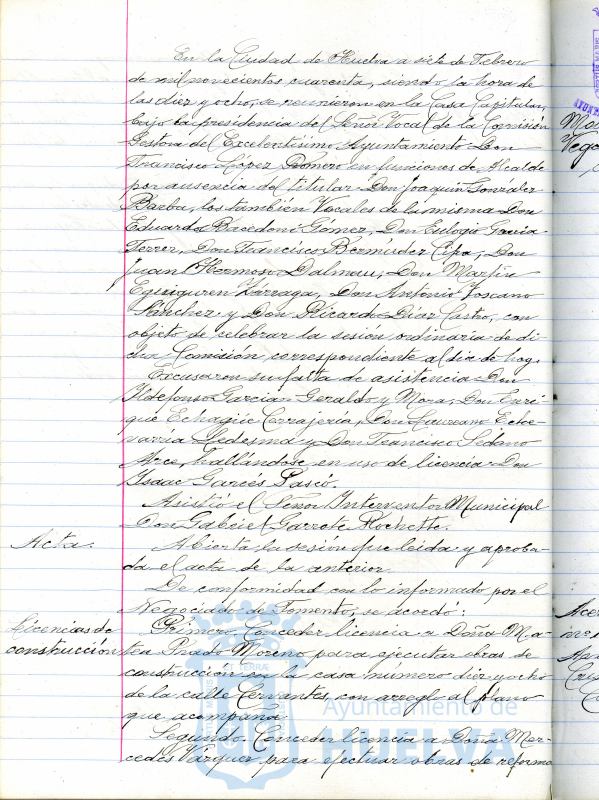 En la Ciudad de Huelva a siete de Febrero
de mil novecientos cuarenta, siendo la hora de
las diez y ocho, se reunieron en la Casa Capitular,
bajo la presidencia del Señor Vocal de la Comisión
Gestora del Excelentísimo Ayuntamiento Don
Francisco López Romero en funciones de Alcalde
por ausencia del titular Don Joaquín González
Barba, los también Vocales de la misma Don
Eduardo Bacedoni Gómez, Don Eulogio García
Ferrer, Don Francisco Bermúdez Cipa, Don
Juan Hermoso Dalmau, Don Martín
Eguiguren Zárraga, Don Antonio Toscano
Sánchez y Don Ricardo Díaz Castro, con
objeto de celebrar la sesión ordinaria de di-
cha Comisión, correspondiente al día de hoy.
Excusaron su falta de asistencia Don
Ildefonso García Geraldo y Mora, Don Enri-
que Echagüe Cerrajería, Don Laureano Eche-
varría Ledesma y Don Francisco Sedano
Arce, hallándose en uso de licencia Don
Isaac Garcés Pascó.
Asistió el Señor Interventor Municipal
Don Gabriel Garrote Rochette.
Acta. Abierta la sesión fue leída y aproba-
da el acta de la anterior.
De conformidad con lo informado por el
Negociado de Fomento, se acordó:
Licencias de Primero. Conceder licencia a Doña Ma-
construcción tea Prado Moreno para ejecutar obras de
construcción en la casa número diez y ocho
de la calle Cervantes, con arreglo al plano
que acompaña.
Segundo. Conceder licencia a Doña Mer-
cedes Vázquez para efectuar obras de reforma
Ayuntamiento de
HUELVA